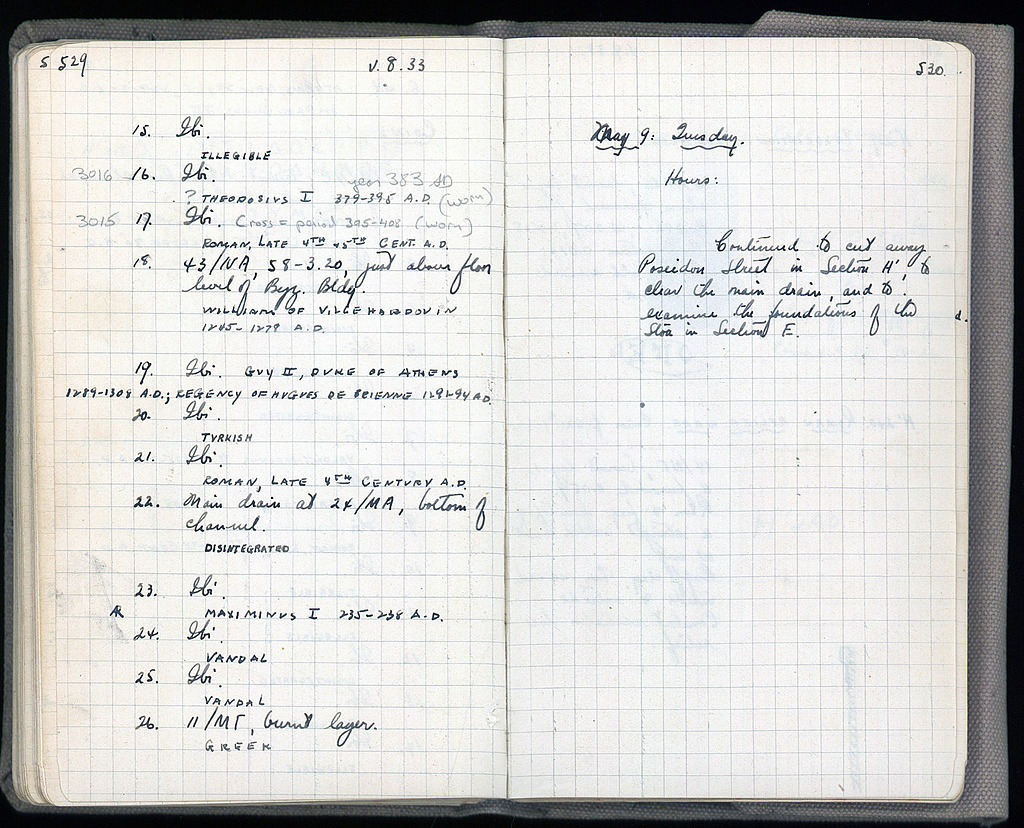 S 529
V. 8. 33
15. Ibi.
ILLEGIBLE
3016 16. Ibi. year 383 AD
? THEODOSIUS I 379-395 A.D. (worn)
3015 17. Ibi. Cross = period 395-408 (worn)
ROMAN, LATE 4TH - 5TH CENT. A.D.
18. 43/NA, 58-3.20, just above floor
level of Byz. Bldg.
WILLIAM OF VILLEHARDOUIN
1245-1279 A.D.
19. Ibi. GUY II, DUKE OF ATHENS
1289-1308 A.D.; REGENCY OF HUGUES DE BRIENNE 1291-94 A.D.
20. Ibi.
TURKISH
21. Ibi.
ROMAN, LATE 4TH CENTURY A.D.
22. Main drain at 24/MA, bottom of
channel.
DISINTEGRATED
23. Ibi.
AR MAXIMINUS I 235-238 A.D.
24. Ibi.
VANDAL
25. Ibi.
VANDAL
26. 11/MΓ, burnt layer.
GREEK
530.
May 9: Tuesday.
Hours:
Continued to cut away
Poseidon Street in Section H', to
clear the main drain, and to
examine the foundations of the
Stoa in Section E.
d.